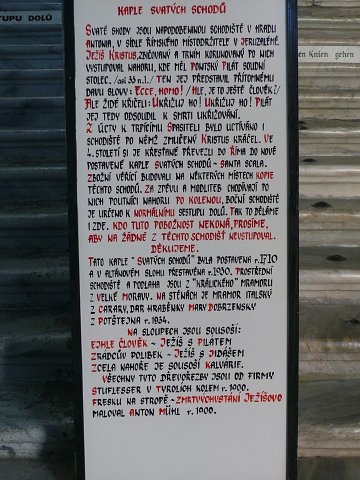 KAPLE SVATÝCH SCHODŮ
SVATÉ SHODY JSOU NAPODOBENINOU SCHODIŠTĚ V HRADU
ANTONIA, V SÍDLE ŘÍMSKÉHO MÍSTODRŽITELE V JERUZALÉMĚ.
JEŽÍŠ KRISTUS, ZBIČOVANÝ A TRNÍM KORUNOVANÝ PO NICH
VYSTUPOVAL NAHORU, KDE MĚL PONTSKÝ PILÁT SOUDNÍ
STOLEC. /ASI 33 N.L./ TEN JEJ PŘEDSTAVIL PŘÍTOMNÉMU
DAVU SLOVY: ECCE, HOMO! /HLE, JE TO JEŠTĚ ČLOVĚK?/
ALE ŽIDÉ KŘIČELI: UKŘIŽUJ HO! UKŘIŽUJ HO! PILÁT
JEJ TEDY ODSOUDIL K SMRTI UKŘIŽOVÁNÍ.
Z ÚCTY K TRPÍCÍMU SPASITELI BYLO UCTÍVÁNO I
SCHODIŠTĚ PO NĚMŽ ZMUČENÝ KRISTUS KRÁČEL. VE
4. STOLETÍ SI JE KŘESŤANÉ PŘEVEZLI DO ŘÍMA DO NOVĚ
POSTAVENÉ KAPLE SVATÝCH SCHODŮ - SANTA SCALA.
ZBOŽNÍ VĚŘÍCÍ BUDOVALI NA NĚKTERÝCH MÍSTECH KOPIE
TĚCHTO SCHODŮ. ZA ZPĚVU A MODLITEB CHODÍVAJÍ PO
NICH POUTNÍCI NAHORU PO KOLENOU, BOČNÍ SCHODIŠTĚ
JE URČENO K NORMÁLNÍMU SESTUPU DOLŮ. TAK TO DĚLÁME
I ZDE. KDO TUTO POBOŽNOST NEKONÁ, PROSÍME,
ABY NA ŽÁDNÉ Z TĚCHTO SCHODIŠŤ NEVSTUPOVAL.
DĚKUJEME.
TATO KAPLE "SVATÝCH SCHODŮ" BYLA POSTAVENA R. 1710
A V ALTÁNOVÉM SLOHU PŘESTAVĚNA R. 1900. PROSTŘEDNÍ
SCHODIŠTĚ A PODLAHA JSOU Z "KRÁLICKÉHO" MRAMORU
Z VELKÉ MORAVY. NA STĚNÁCH JE MRAMOR ITALSKÝ
Z CARARY, DAR HRABĚNKY MARY DOBRZENSKY
Z POTŠTEJNA R. 1934.
NA SLOUPECH JSOU SOUSOŠÍ:
EJHLE ČLOVĚK - JEŽÍŠ S PILÁTEM
ZRÁDCŮV POLIBEK - JEŽÍŠ S JIDÁŠEM
ZCELA NAHOŘE JE SOUSOŠÍ KALVÁRIE.
VŠECHNY TYTO DŘEVOŘEZBY JSOU OD FIRMY
STUFLESSER V TYROLÍCH KOLEM R. 1900.
FRESKU NA STROPĚ - ZMRTVÝCHVSTÁNÍ JEŽÍŠOVO
MALOVAL ANTON MÜHL R. 1900.
TUPU DOLŮ
en Knien gehen